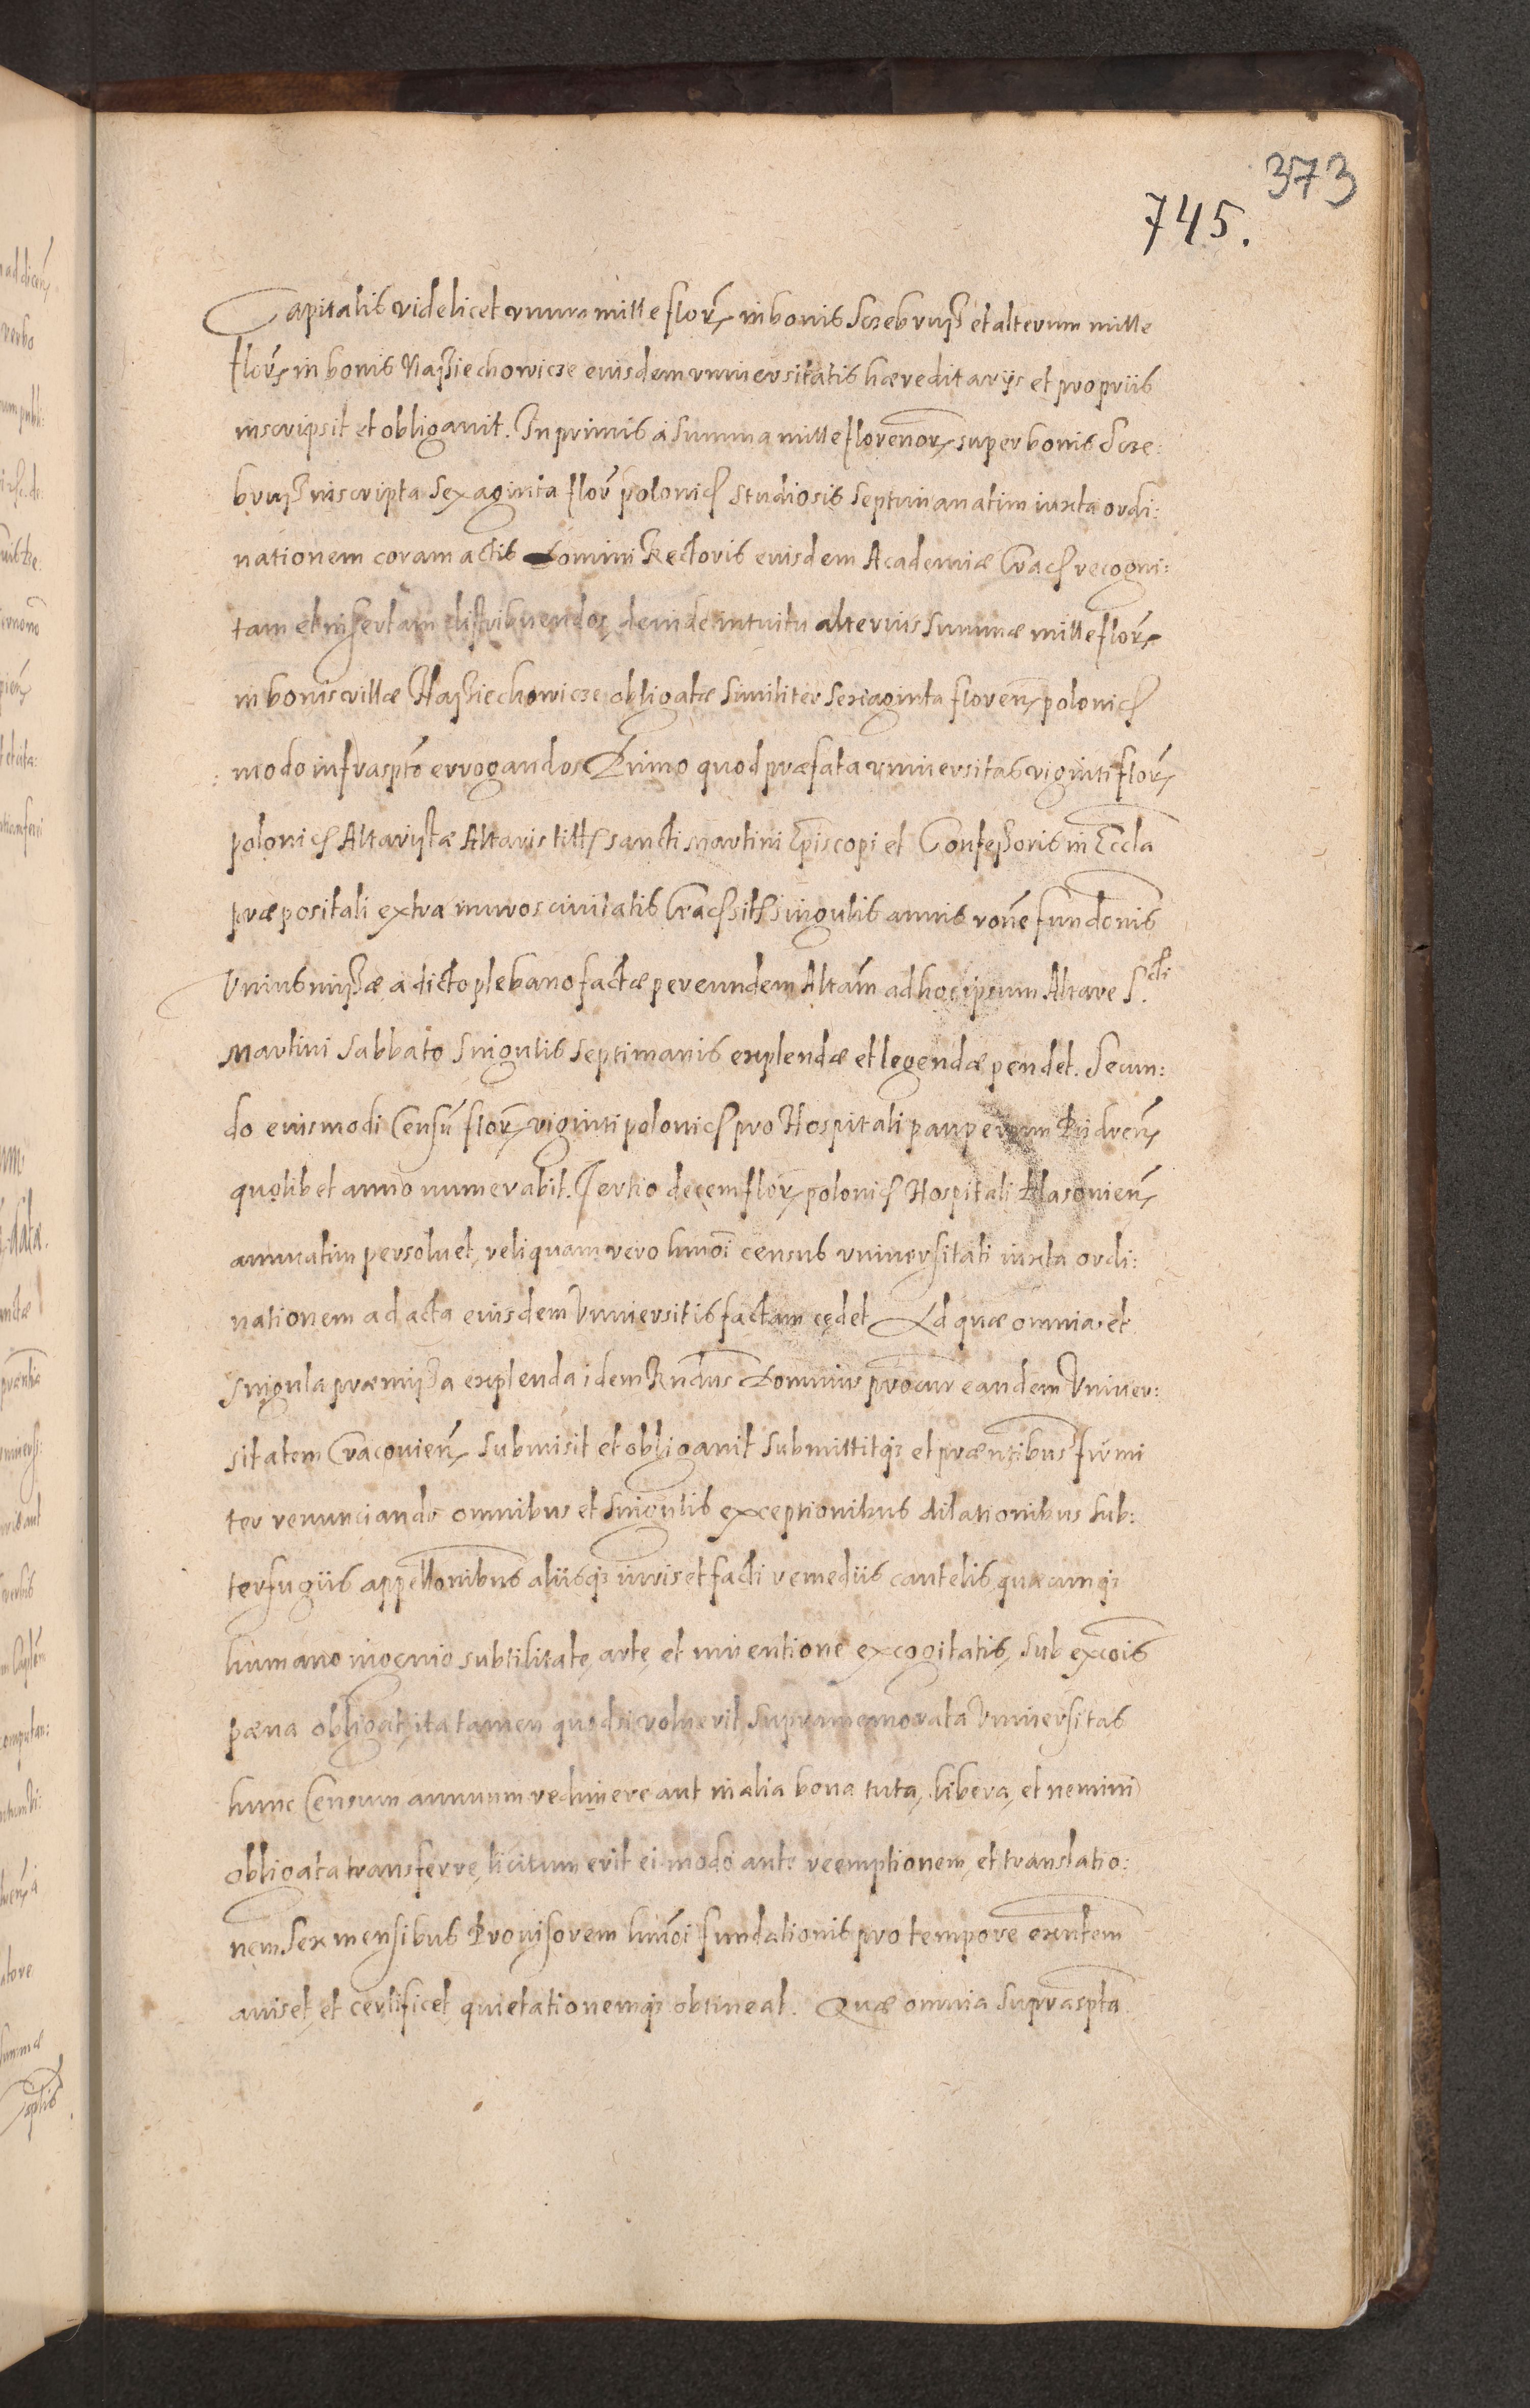 373
745.
Capitalis videlicet unum mille flor: in bonis Screbruyß et alterum mille
flor: in bonis Naßiechowicze eiusdem universitatis hæreditarijs et propriis
inscripsit et obligavit. Inprimis a summa mille florenor: super bonis Scre:
bruyß inscripta sexaginta flor polonic studiosis septimanatim iuxta ordi:
nationem coram actis Domini Rectoris eiusdem Academiæ Crac recogni:
tam et insertam distribuendos deinde intuitu alterius summæ mille flor:
in bonis villæ Naßiechowicze obligatæ similiter sexaginta floren polonic
modo infrasptô errogandos Primo quod præfata universitas viginti flor:
polonic Altarijstæ Altaris titt sancti Martini Episcopi et Confeßoris in Eccla
præpositali extra muros civitatis Crac sit singulis annis rone fundonis
Unius mißæ a dicto plebano factæ per eundem Altam ad hoc ipsum Altare S.cti
Martini sabbato singulis septimanis explendæ et legendæ pendet. Secun:
do eiusmodi Censu flor: viginti polonic pro Hospitali pauperum
quolibet anno numerabit. Tertio decem flor: polonic Hospitali
annuatim persolvet, reliquam vero hmoi census universitati iuxta ordi:
nationem ad acta eiusdem Universitis factam cedet Ad quæ omnia et
singula præmißa explenda idem Rndus Dominus procur eandem Univer:
sitatem Cracovien submisit et obligavit submittitq; et præntibus firmi
ter renunciando omnibus et singulis exceptionibus dilationibus sub:
terfugiis appellonibus aliisq; iuris et facti remediis cautelis quacunq;
humano ingenio subtilitate, arte, et inventione excogitatis, sub excois
pæna obligat, ita tamen quod si voluerit supramemorata Universitas
hunc Censum annuum redimere aut in alia bona tuta, libera, et nemini
obligata transferre, licitum erit ei modo ante reemptionem, et translatio:
nem sex mensibus Provisorem hmoi fundationis pro tempore exntem
aviset, et certificet quietationemq; obtineat. Quæ omnia supraspta